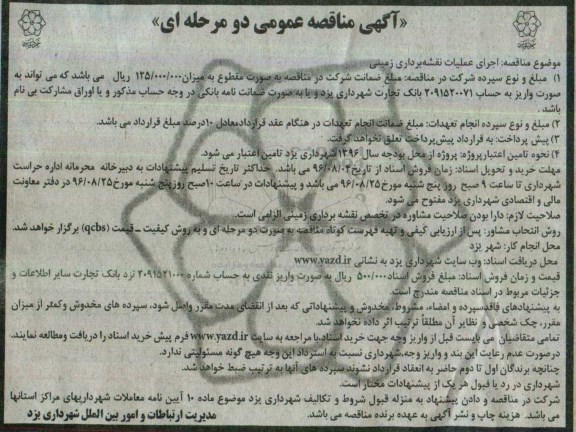 «آگهی مناقصه عمومی دو مرحله ای»
موضوع مناقصه: اجرای عملیات نقشه‌برداری زمینی
۱) مبلغ و نوع سپرده شرکت در مناقصه: مبلغ ضمانت شرکت در مناقصه به صورت مقطوع به میزان ۱۳۵/۰۰۰/۰۰۰ ریال می باشد که می تواند به
صورت واریز به حساب (۲۰۹۱۵۲۰۰۷) بانک تجارت شهرداری یزد و یا به صورت ضمانت نامه بانکی در وجه حساب مذکور و یا اوراق مشارکت بی نام
باشد.
۲) مبلغ و نوع سپرده انجام تعهدات: مبلغ ضمانت انجام تعهدات در هنگام عقد قرارداد،معادل ۱۰درصد مبلغ قرارداد می باشد.
۳) پیش پرداخت: به قرارداد پیش‌پرداخت تعلق نخواهد گرفت.
۴) نحوه تامین اعتبارپروژه: پروژه از محل بودجه سال ۱۳۹۶شهرداری یزد تامین اعتبار می شود.
مهلت خرید و تحویل اسناد: زمان فروش اسناد از تاریخ۹۶/۰۸/۰۴ می باشد. حداکثر تاریخ تسلیم پیشنهادات به دبیرخانه محرمانه اداره حراست
شهرداری تا ساعت ۹ صبح روز پنج شنبه مورخ۹۶/۰۸/۲۵ می باشد و پیشنهادات در ساعت ۱۰صبح روزپنج شنبه مورخ۹۶/۰۸/۲۵ در دفتر معاونت
مالی و اقتصادی شهرداری یزد مفتوح می شود.
صلاحیت لازم: دارا بودن صلاحیت مشاوره در تخصص نقشه برداری زمینی الزامی است.
روش انتخاب مشاور: پس از ارزیابی کیفی و تهیه فهرست کوتاه مناقصه به صورت دو مرحله ای و به روش کیفیت ـ قیمت (qcbs) برگزار خواهد شد.
محل انجام کار: شهر یزد
محل دریافت اسناد: وب سایت شهرداری یزد به نشانی www.yazd.ir
قیمت و زمان فروش اسناد: مبلغ فروش اسناد۵۰۰/۰۰۰ ریال به صورت واریز نقدی به حساب شماره ۲۰۹۱۵۲۱۰۰۰ نزد بانک تجارت سایر اطلاعات و
جزئیات مربوط در اسناد مناقصه مندرج است.
به پیشنهادهای فاقدسپرده و امضاء، مشروط، مخدوش و پیشنهاداتی که بعد از انقضای مدت مقرر واصل شود، سپرده های مخدوش وکمتر از میزان
مقرر، چک شخصی و نظایر آن مطلقاً ترتیب اثر داده نخواهد شد.
تمامی متقاضیان می بایست قبل از واریز وجه جهت خرید اسناد،با مراجعه به سایت www.yazd.ir فرم پیش خرید اسناد را دریافت ومطالعه نمایند.
درصورت عدم رعایت این بند و واریز وجه،شهرداری نسبت به استرداد این وجه هیچ گونه مسئولیتی ندارد.
چنانچه برندگان اول تا دوم حاضر به انعقاد قرارداد نشوند سپرده های آنها به ترتیب ضبط خواهد شد.
شهرداری در رد یا قبول هر یک از پیشنهادات مختار است.
شرکت در مناقصه و دادن پیشنهاد به منزله قبول شروط و تکالیف شهرداری یزد موضوع ماده ۱۰ آیین نامه معاملات شهرداریهای مراکز استانها
می باشد. هزینه چاپ و نشر آگهی به عهده برنده مناقصه می باشد.
مدیریت ارتباطات و امور بین الملل شهرداری یزد